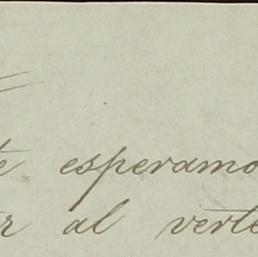 te esperamo
r al verte